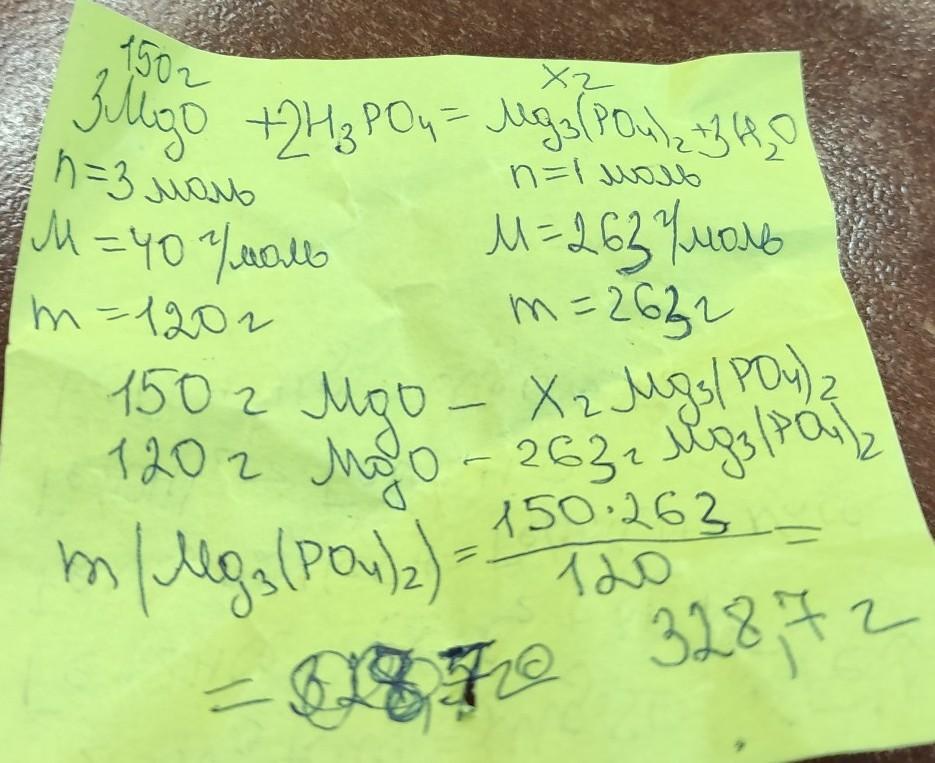 150г x г
3MgO + 2H₃PO₄ = Mg₃(PO₄)₂ + 3H₂O
n = 3 моль n = 1 моль
M = 40 г/моль M = 263 г/моль
m = 120 г m = 263 г
150 г MgO – x г Mg₃(PO₄)₂
120 г MgO – 263 г Mg₃(PO₄)₂
m(Mg₃(PO₄)₂) = 150·263 / 120 =
328,7 г
=